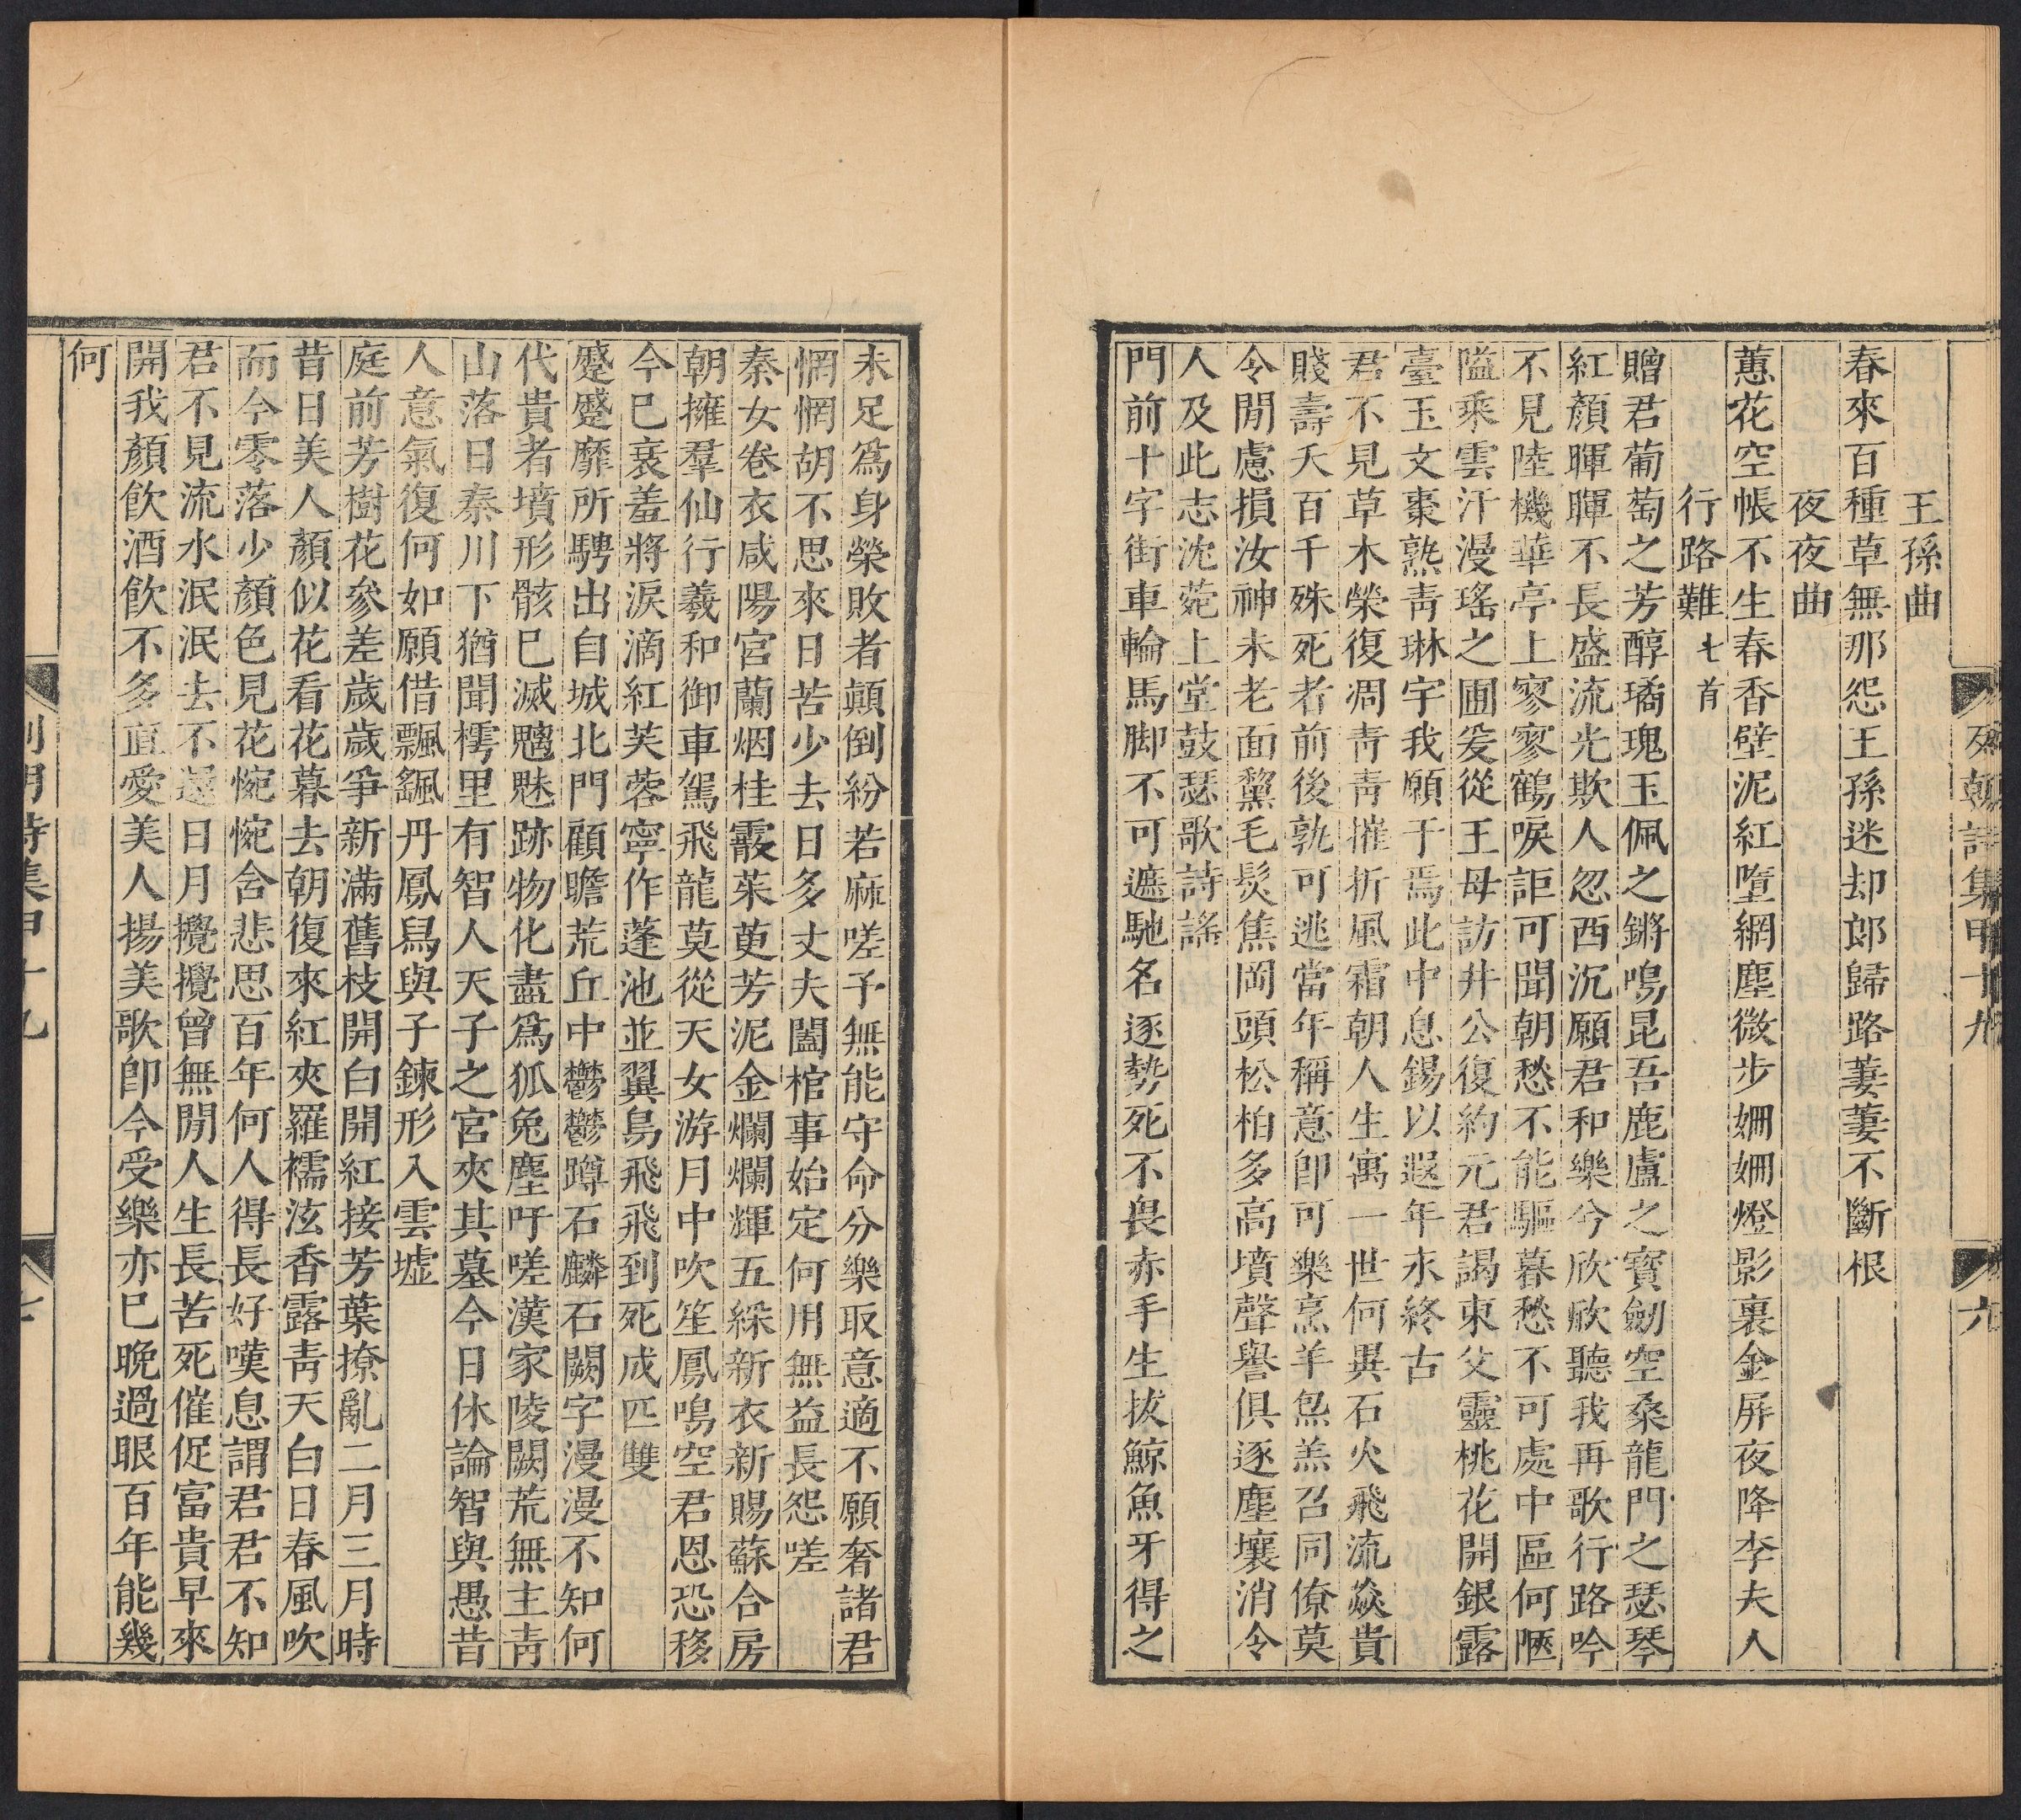 列朝詩集甲十九
六
王孫曲
春來百種草無那怨王孫迷却郎歸路萋萋不斷根
夜夜曲
蕙花空帳不生春香壁泥紅墮網塵微步姍姍燈影裏金屏夜降李夫人
行路難七首
贈君葡萄之芳醇璚瑰玉佩之鏘鳴昆吾鹿盧之寶劒空桑龍門之瑟琴
紅顏暉暉不長盛流光欺人忽西沉願君和樂兮欣欣聽我再歌行路吟
不見陸機華亭上寥寥鶴唳詎可聞朝愁不能驅暮愁不可處中區何陋
隘乘雲汗漫瑤之圃爰從王母訪井公復約元君謁東父靈桃花開銀露
臺玉文棗熟靑琳宇我願于焉此中息錫以遐年永終古
君不見草木榮復凋靑靑摧折風霜朝人生寓一世何異石火飛流焱貴
賤壽夭百千殊死者前後孰可逃當年稱意卽可樂烹羊炰羔召同僚莫
令閒慮損汝神未老面黧毛髮焦岡頭松柏多高墳聲譽俱逐塵壤消令
人及此志沈菀上堂鼓瑟歌詩謠
門前十字街車輪馬脚不可遮馳名逐勢死不畏赤手生拔鯨魚牙得之
未足爲身榮敗者顛倒紛若麻嗟予無能守命分樂取意適不願奢諸君
惘惘胡不思來日苦少去日多丈夫闔棺事始定何用無益長怨嗟
秦女卷衣咸陽宮蘭烟桂霰茱萸芳泥金爛爛輝五綵新衣新賜蘇合房
朝擁羣仙行羲和御車駕飛龍莫從天女游月中吹笙鳳鳴空君恩恐移
今已衰羞將淚滴紅芙蓉寧作蓬池並翼鳥飛飛到死成匹雙
蹙蹙靡所騁出自城北門顧瞻荒丘中鬱鬱蹲石麟石闕字漫漫不知何
代貴者墳形骸已滅魑魅跡物化盡爲狐兔塵吁嗟漢家陵闕荒無主靑
山落日秦川下猶聞樗里有智人天子之宮夾其墓今日休論智與愚昔
人意氣復何如願借飄䬙丹鳳舄與子鍊形入雲墟
庭前芳樹花參差歲歲爭新滿舊枝開白開紅接芳葉撩亂二月三月時
昔日美人顏似花看花暮去朝復來紅夾羅襦泫香露靑天白日春風吹
而今零落少顏色見花惋惋含悲思百年何人得長好嘆息謂君君不知
君不見流水泯泯去不還日月攪攪曾無閒人生長苦死催促富貴早來
開我顏飮酒飮不多直愛美人揚美歌卽今受樂亦已晚過眼百年能幾
何
列朝詩集甲十九
七